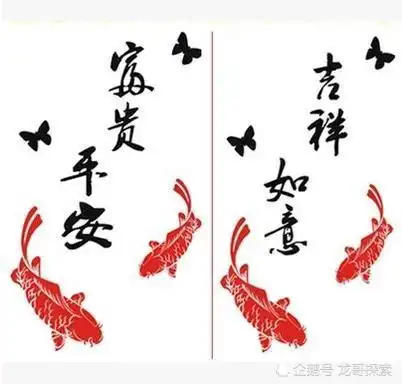 富贵
平安
吉祥
如意
企鹅号 龙哥探索